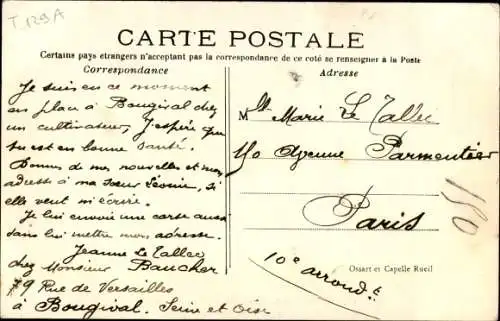 T129A
CARTE POSTALE
Certains pays étrangers n'acceptant pas la correspondance de ce coté se renseigner à la Poste
Correspondance
Adresse
Je suis en ce moment
en place à Bougival chez
un cultivateur, j'espère que
tu est en bonne santé.
Donnes de mes nouvelles et mon
adresse à ma sœur Léonie, si
elle veut m'écrire.
Je lui envoie une carte aussi
sans lui mettre mon adresse.
Jeanne Le Tallec
chez Monsieur Baucher
79 Rue de Versailles
à Bougival. Seine et Oise
Mlle Marie Le Tallec
150 Avenue Parmentier
Paris
10e arrondt
150
Ossart et Capelle Rueil